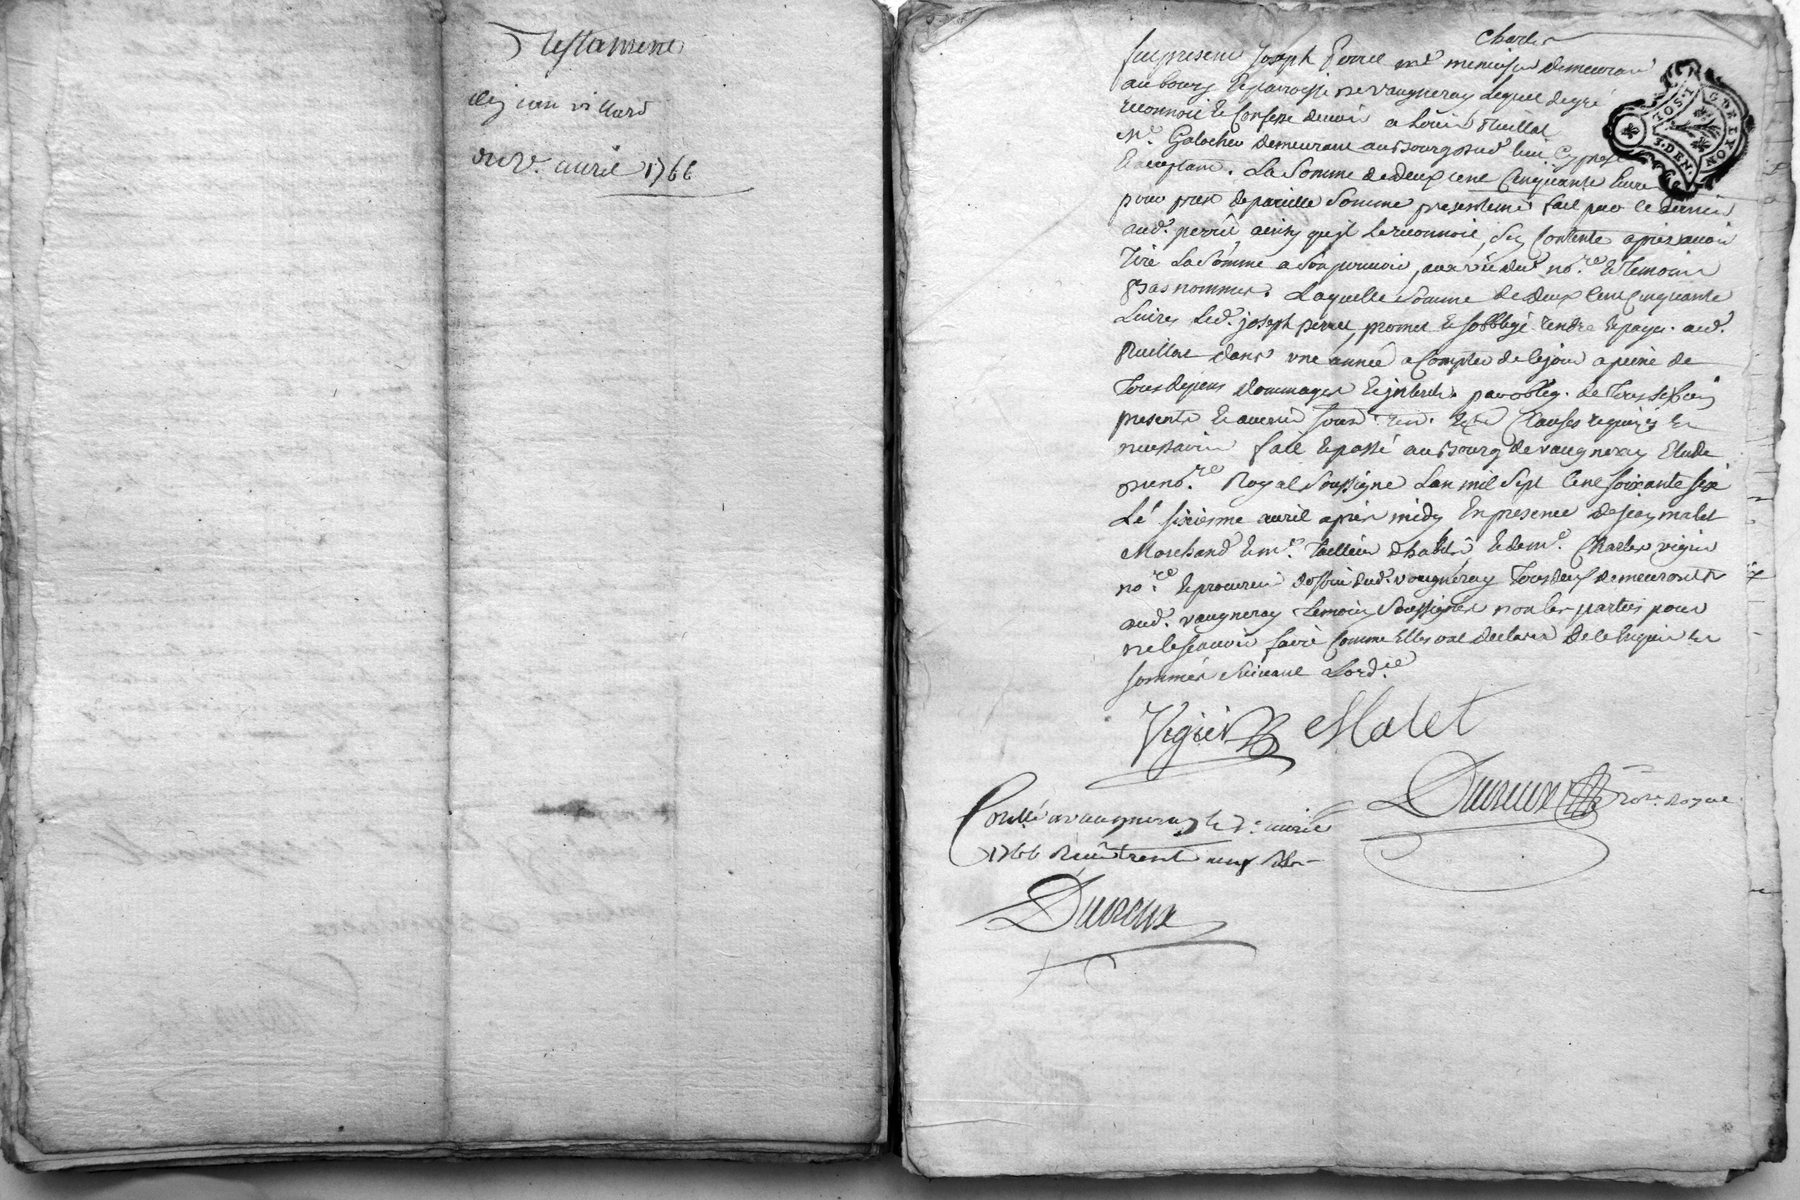 Testament
de jean villard
du 5e. avril 1766
Charles
fut present Joseph Perret me. menuisier demeurant
au bourg et parroisse de vaugneray lequel de gré
reconnoit et confesse devoir a Louis Ruillat
Me. Galocher demeurant au Bourg sud. lieu cy present
et acceptant. La Somme de deux cent Cinquante livres
pour prest de pareille Somme presentement fait par le dernier
aud. perret ainsy quil le reconnoit, sen Contente apres avoir
Tiré La Somme a Son pouvoir, aux vüe dud. no.re et Temoins
Bas nommes. Laquelle Somme de deux Cent Cinquante
Livres Led. joseph perret, promet et soblige rendre et payer aud.
Ruillat dans une année a Compter de ce jour a peine de
Tous depens dommages et jnterets. par oblig. de Tous ses biens
presents et avenir Clauses requises et
necessaires fait et passé au Bourg de vaugneray Etude
du no.re Royal Soussigné Lan mil Sept Cent soixante six
Le sixieme avril apres midy En presence de jean malet
Marchand et me. Tailleur dhabits et de me. Charles vigier
no.re et procureur dud. vaugneray Tous deux demeurants
aud. vaugneray Temoins Soussignés non les parties pour
ne le scavoir faire Comme Elles ont declaré de ce Enquis et
sommés Suivant Lord.ce
Vigier Malet
Duvreux no.re Royal
Conllé a vaugneray le 7e avril
1766 Recu trente neuf
Duvreux